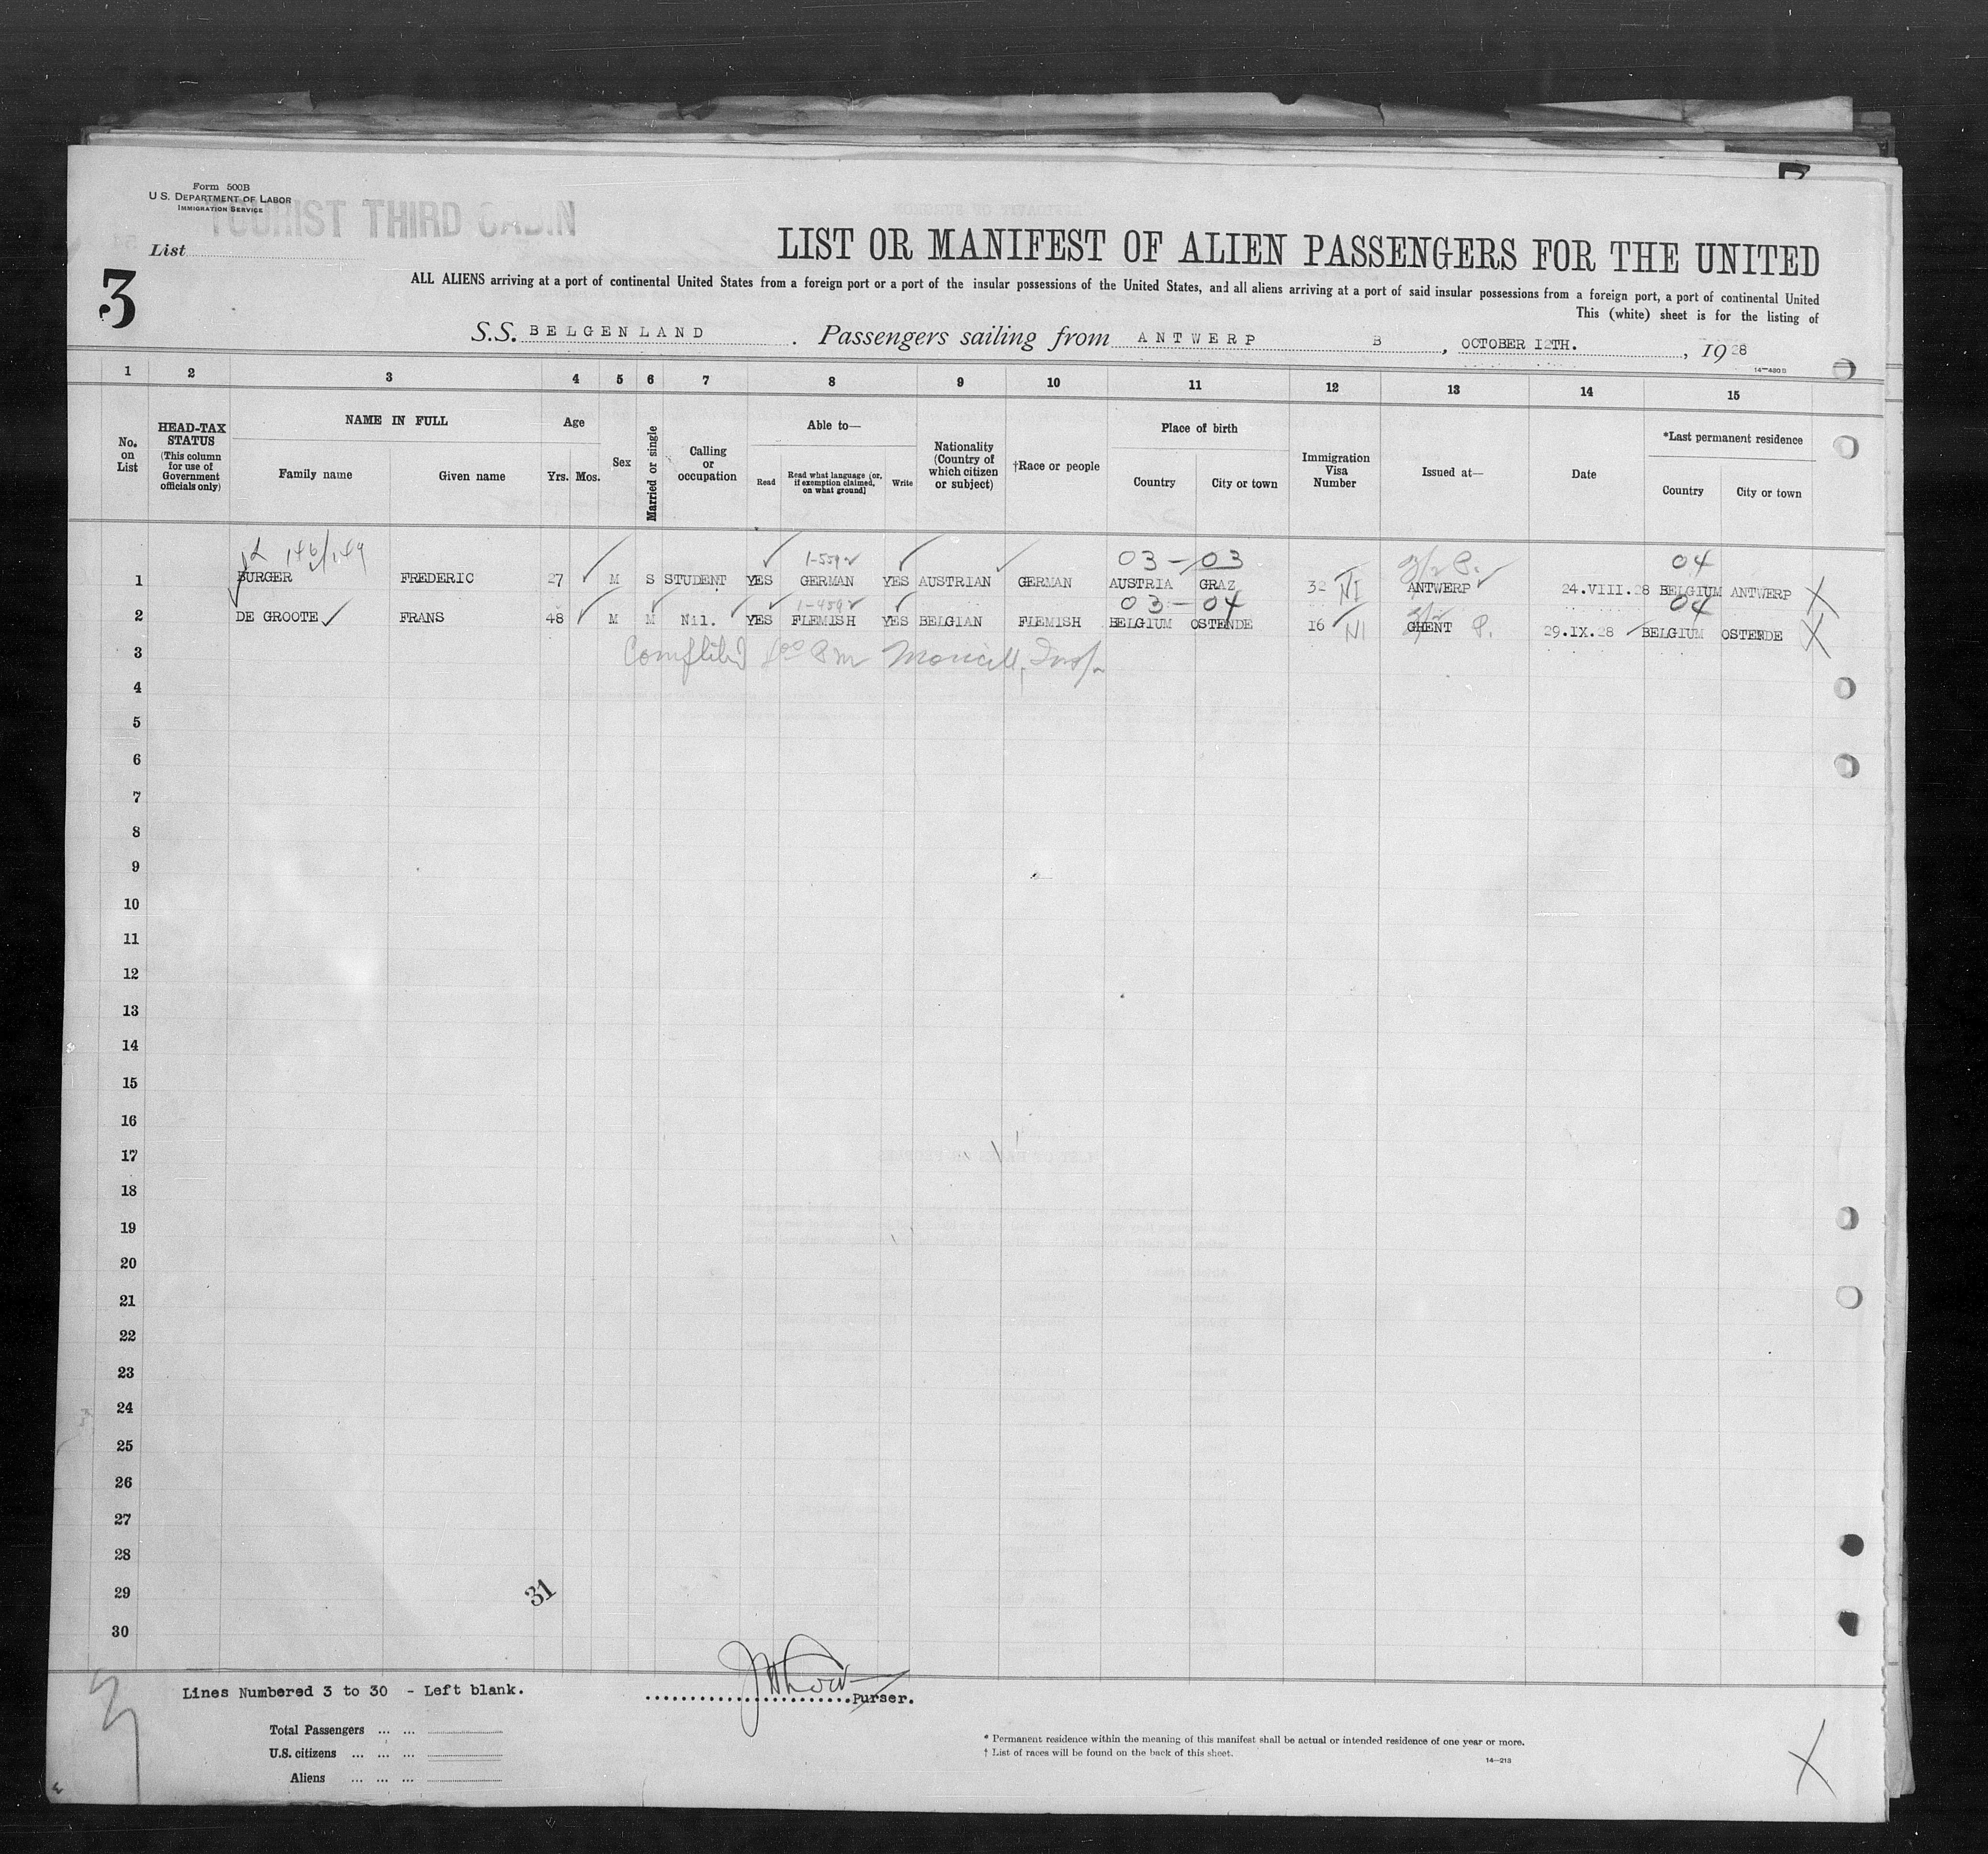 Form 500B
U S. DEPARTMENT OF LABOR
IMMIGRATION SERVICE
TOURIST THIRD CABIN
List
3
LIST OR MANIFEST OF ALIEN PASSENGERS FOR THE UNITED
ALL ALIENS arriving at a port of continental United States from a foreign port or a port of the insular possessions of the United States, and all aliens arriving at a port of said insular possessions from a foreign port, a port of continental United
This (white) sheet is for the listing of
S.S. BELGENLAND . Passengers sailing from ANTWERP B , OCTOBER I2TH. , 1928
14—480 B
1 2 3 4 5 6 7 8 9 10 11 12 13 14 15
No. on List
HEAD-TAX STATUS
(This column for use of Government officials only)
NAME IN FULL
Family name Given name
Age
Yrs. Mos.
Sex
Married or single
Calling or occupation
Able to—
Read
Read what language (or, if exemption claimed, on what ground)
Write
Nationality (Country of which citizen or subject)
†Race or people
Place of birth
Country City or town
Immigration Visa Number
Issued at—
Date
*Last permanent residence
Country City or town
146/149 1-559 03-03 04
1 BURGER FREDERIC 27 M S STUDENT YES GERMAN YES AUSTRIAN GERMAN AUSTRIA GRAZ 32 NI ANTWERP 24.VIII.28 BELGIUM ANTWERP X
1-459 03-04 04
2 DE GROOTE FRANS 48 M M Nil. YES FLEMISH YES BELGIAN FLEMISH BELGIUM OSTENDE 16 NI GHENT P. 29.IX.28 BELGIUM OSTENDE X
3
4
5
6
7
8
9
10
11
12
13
14
15
16
17
18
19
20
21
22
23
24
25
26
27
28
29
31
30
Lines Numbered 3 to 30 - Left blank.
Purser.
Total Passengers ... ...
U.S. citizens ... ... ...
Aliens ... ... ...
* Permanent residence within the meaning of this manifest shall be actual or intended residence of one year or more.
† List of races will be found on the back of this sheet.
14—213
X